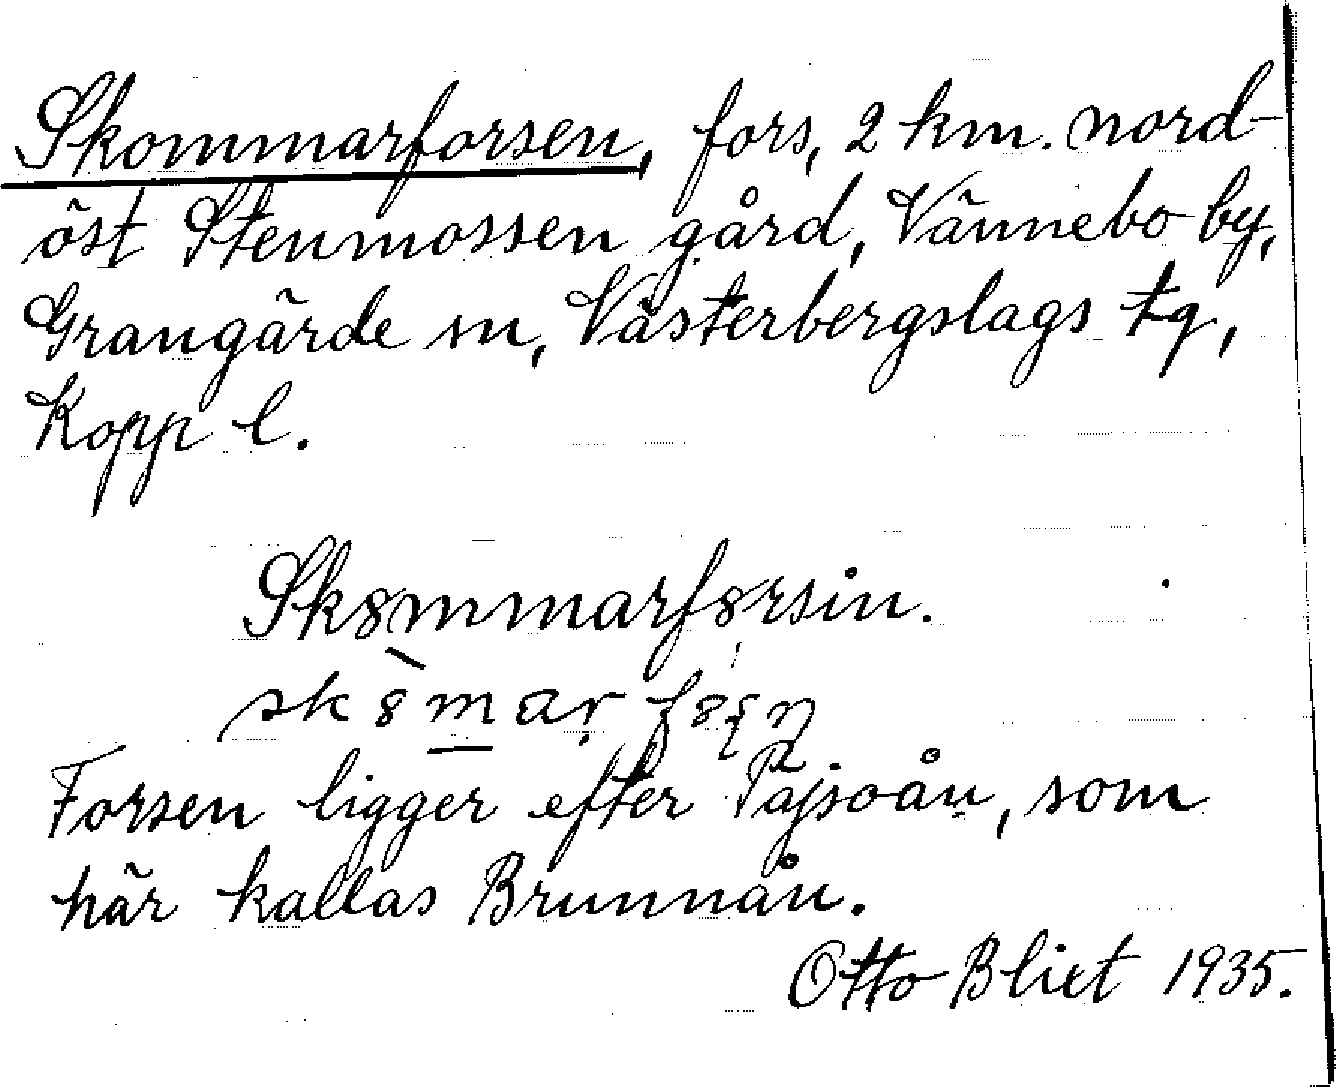 Skommarforsen, fors, 2 km. nord-
öst Stenmossen gård, Vännebo by,
Grangärde sn, Västerbergslags tg,
Kopp l.
Sk8mmarf8rsin.
Forsen ligger efter Pajsoån, som
här kallas Brunnån.
Otto Blixt 1935.